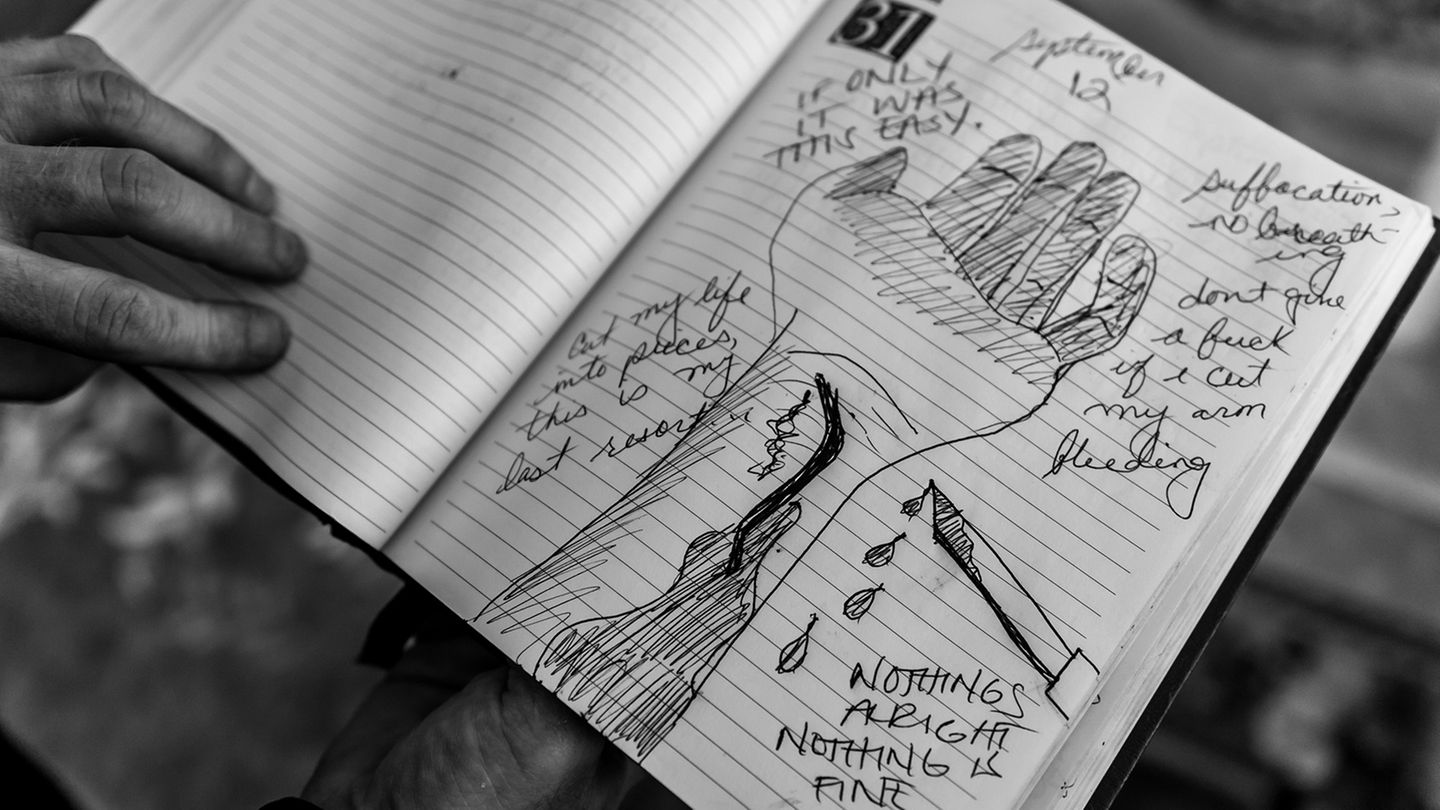 31
september
12
IF ONLY
IT WAS
THIS EASY.
suffocation,
no breath-
ing
dont give
a fuck
if i cut
my arm
bleeding
cut my life
into pieces,
this is my
last resort...
NOTHINGS
ALRIGHT
NOTHING IS
FINE